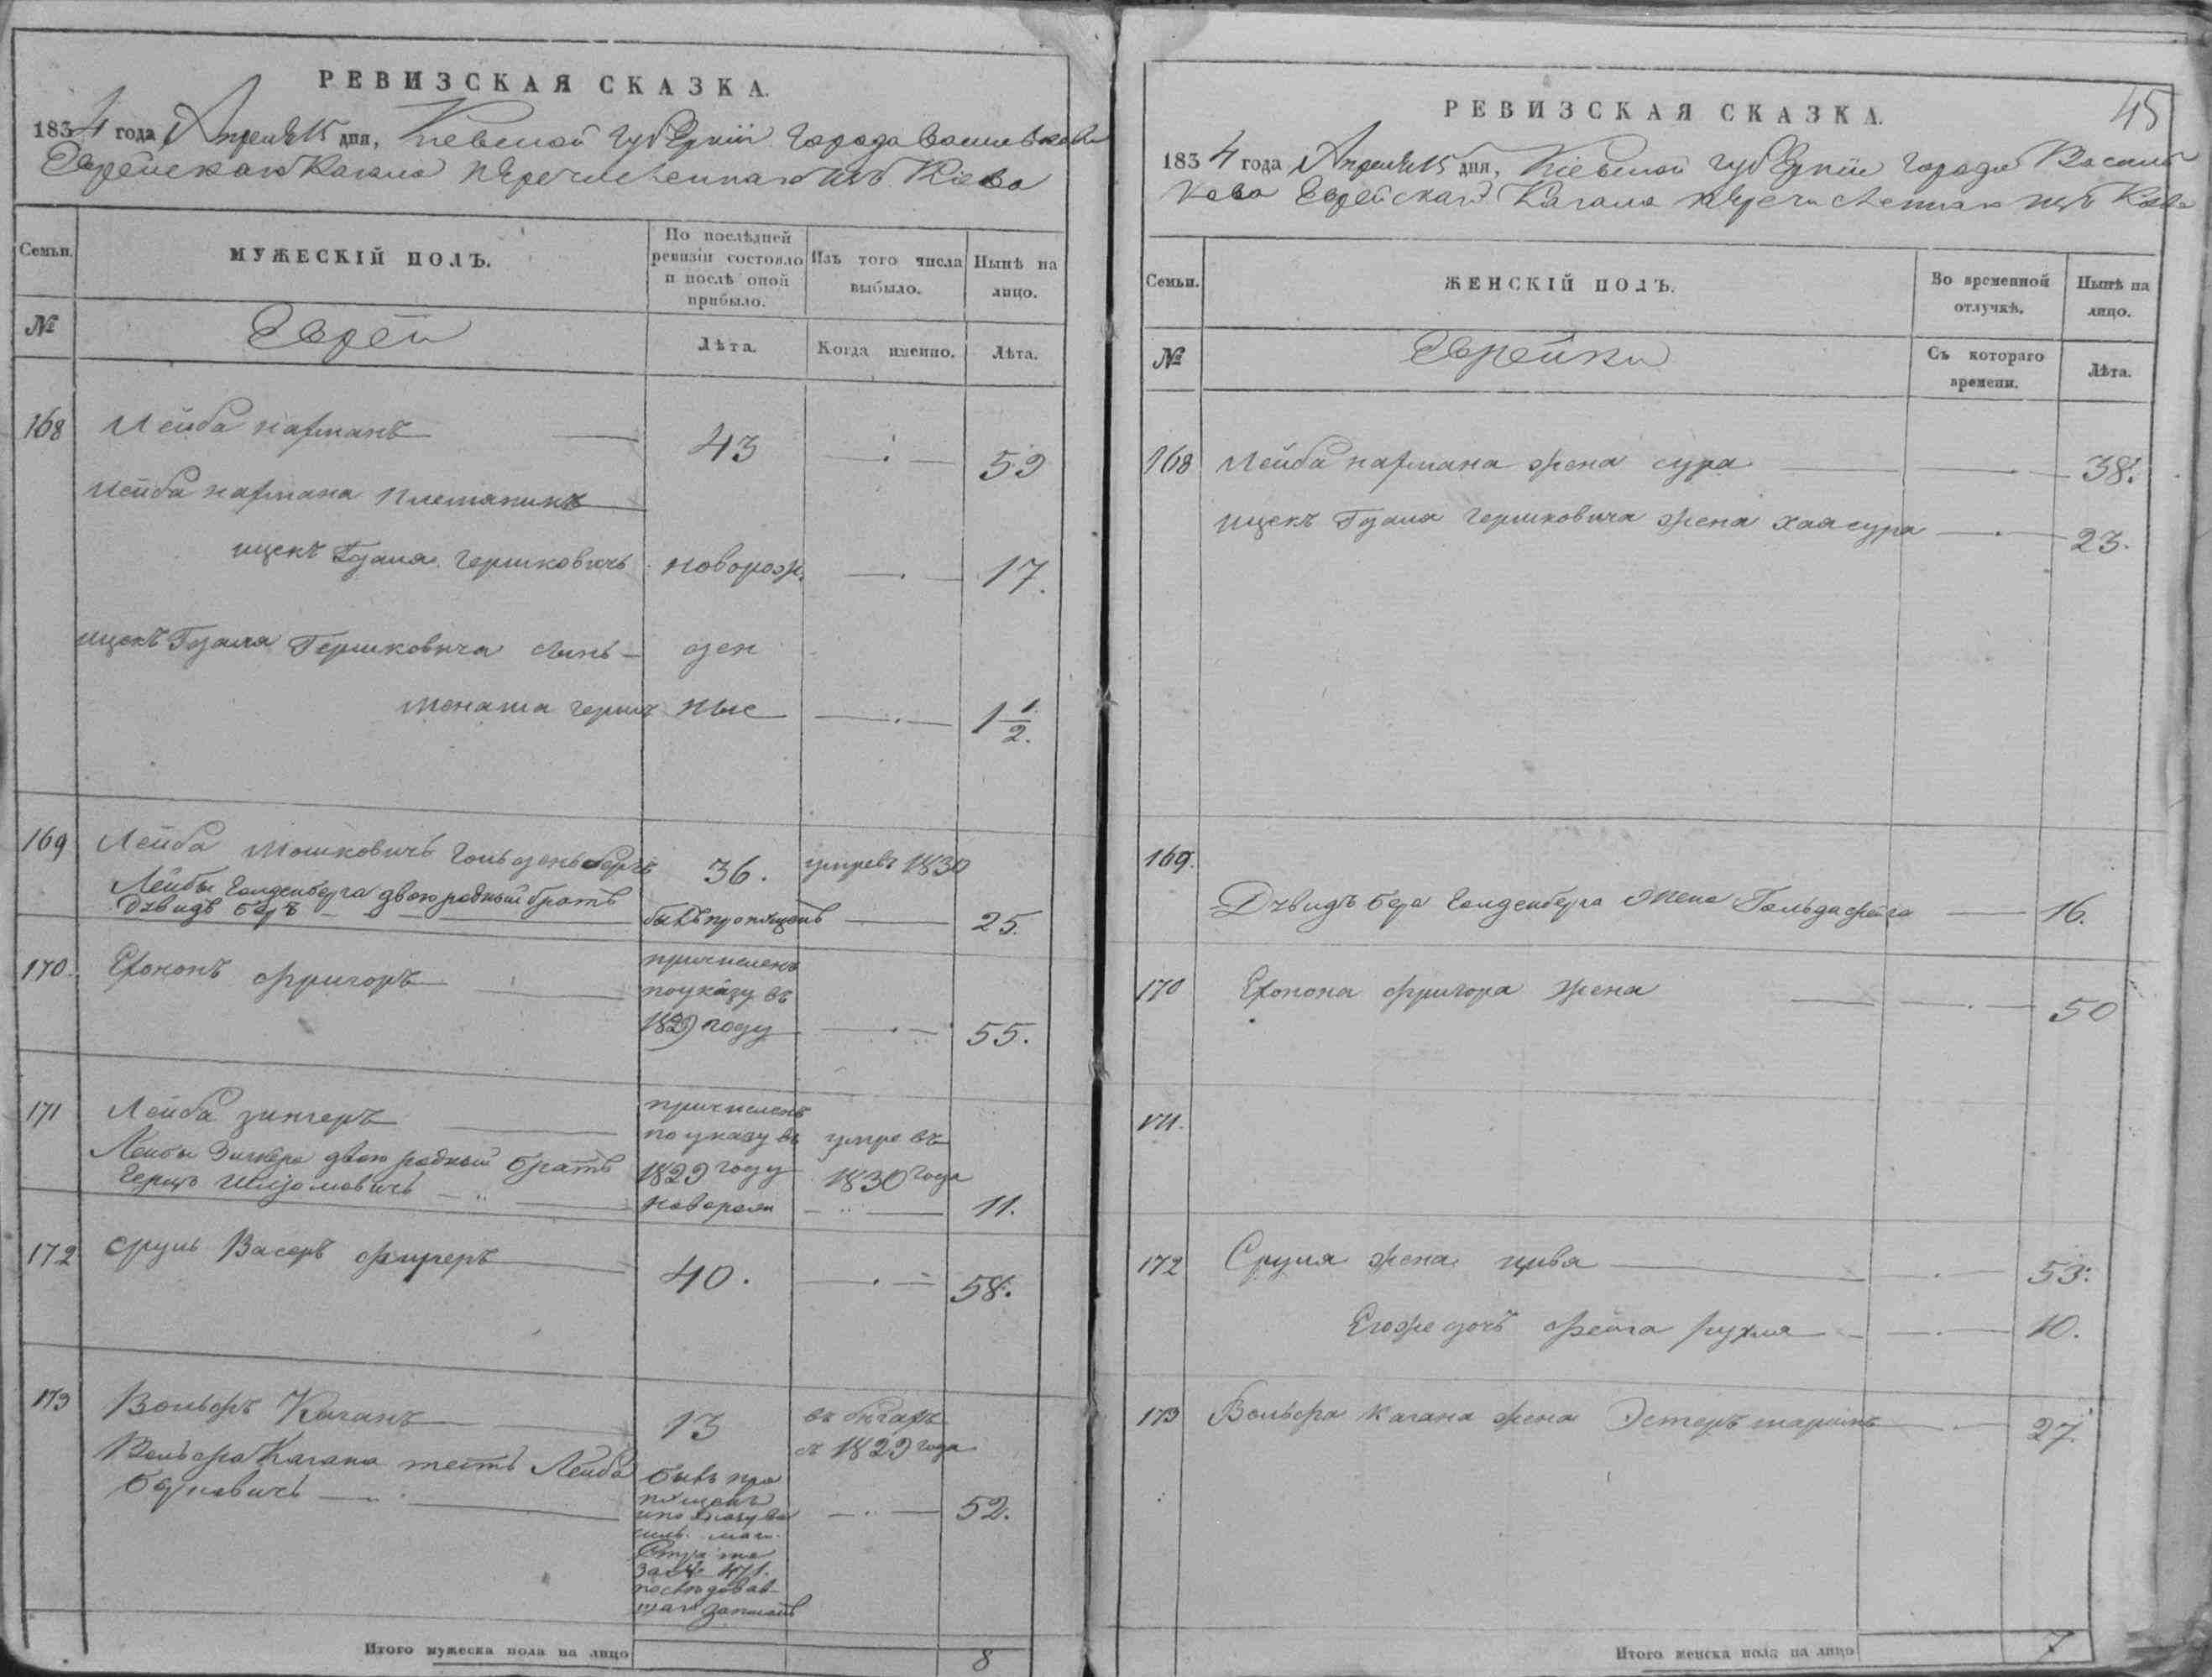 РЕВИЗСКАЯ СКАЗКА.
1834 года Апреля 15 дня, Киевской губернии города Василькова
Еврейскаго Кагала перечисленнаго изъ Киева
Семьи.
МУЖЕСКІЙ ПОЛЪ.
По послѣдней ревизіи состояло и послѣ оной прибыло.
Изъ того числа выбыло.
Нынѣ на лицо.
№
Евреи
Лѣта.
Когда именно.
Лѣта.
168 Лейба 43 59
Лейба племянникъ
ицекъ Гершковичъ новорож. 17.
ицекъ Гершковича сынъ
Менаша Герш 1 1/2.
169 Лейба Мошковичъ Гольденбергъ 36. умре въ 1830
Лейбы Голденберга двоюродный братъ
Дэвидъ Беръ былъ пропущенъ 25.
170. причисленъ
по указу въ
1829 году 55.
171 Лейба зингеръ причисленъ
по указу въ умре въ
Лейбы Зингера двоюродный братъ 1829 году 1830 года
Герцъ Шлiомовичъ новорож 11.
172 Сруль Васер 40. 58.
173 Вольфъ Каганъ 13 въ бѣгахъ
съ 1829 года
Вольфа Кагана тесть Лейба бывъ про
пущенъ 52.
за № 471.
последовав
Итого мужеска пола на лицо 8
45
РЕВИЗСКАЯ СКАЗКА.
1834 года Апреля 15 дня, Киевской губернии города Василь
кова Еврейскаго Кагала перечисленнаго изъ Киева
Семьи.
ЖЕНСКІЙ ПОЛЪ.
Во временной отлучкѣ.
Нынѣ на лицо.
№
Еврейки
Съ котораго времени.
Лѣта.
168 Лейба жена сура 38.
ицекъ Гершковича жена хая сура 23.
169.
Дэвидъ Бера Голденберга жена Гольда фейга 16.
170 жена 50
171.
172 Сруля жена цивя 53.
Его же дочь фейга рухля 10.
173 Вольфа Кагана жена Эстеръ 27.
Итого женска пола на лицо 7